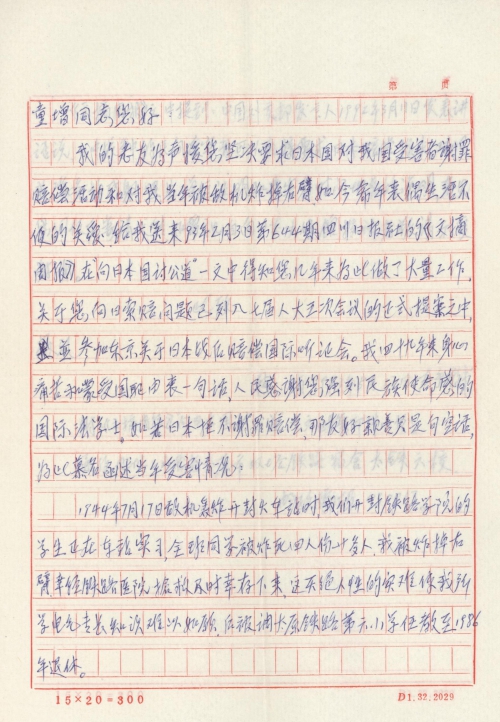 第 页
童增同志您好
我的老友为声援您坚决要求日本国对我国受害者谢罪
赔偿活动和对我当年被敌机炸掉右臂如今都年衰偶生活不
便的关缓,给我送来93年2月3日第644期四川日报社的《文摘
周报》,在"向日本国讨公道"一文中得知您几年来为此做了大量工作。
关于您向日索赔问题已列入七届人大五次会议的正式提案之中,
並参加东京关于日本战后赔偿国际听证会。我四十九年来身心
痛苦和蒙受国耻由衷一句话,人民感谢您强烈民族使命感的
国际法学士。如若日本佬不谢罪赔偿,那友好款意只是句空话,
为此慕名函述当年受害情况:
1944年7月17日敌机轰炸开封火车站时,我们开封铁路学院的
学生正在车站实习,全班同学被炸死四人伤十多人,我被炸掉右
臂幸经铁路医院抢救及时幸存下来,这灭绝人性的灾难使我所
学电气专长知识难以如愿,后被调太原铁路第六小学任教至1986
年退休。
15×20=300
D1.32.2029